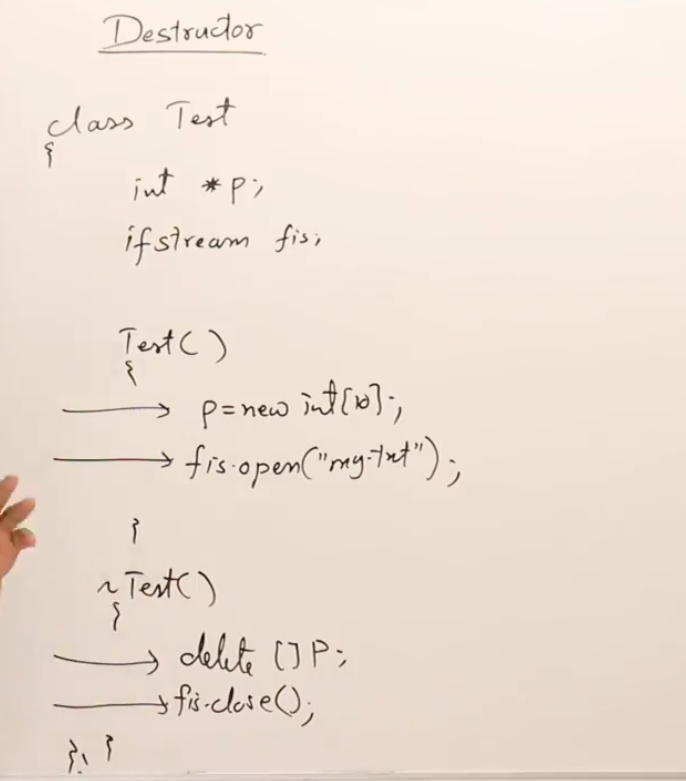 Destructor
class Test
{
int *p;
ifstream fis;
Test()
{
p=new int[10];
fis.open("my.txt");
}
~Test()
{
delete []P;
fis.close();
}; }